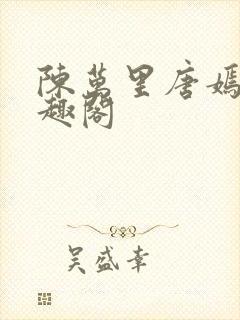 陳萬里唐嫣
趣閣
吴盛幸